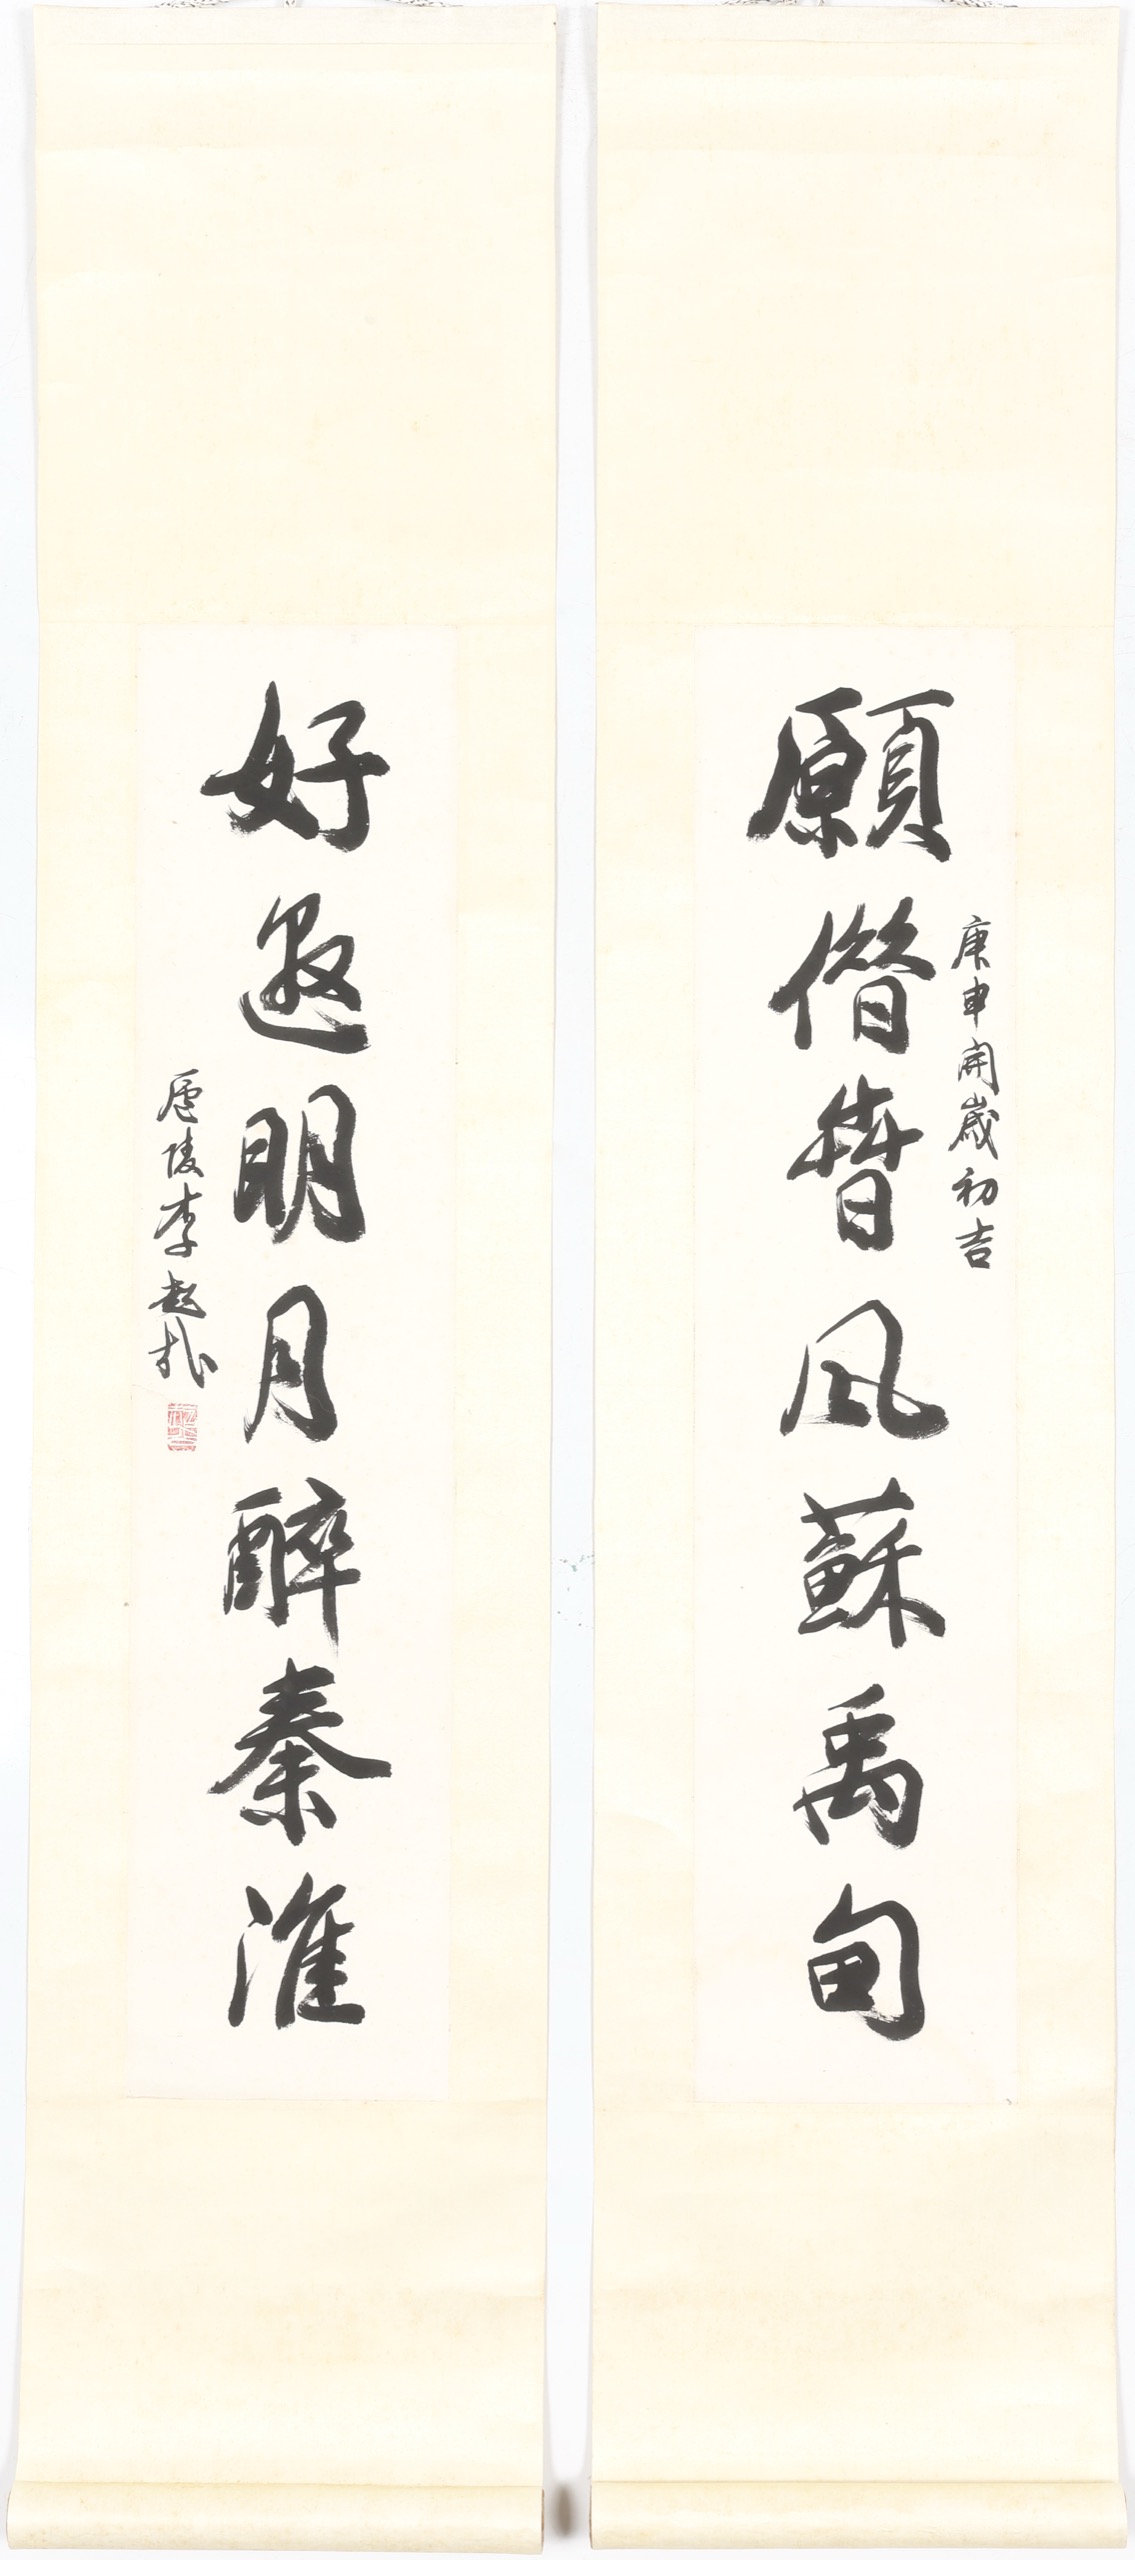 願偕春風蘇禹甸
庚申開歲初吉
好邀明月醉秦淮
廬陵李超哉